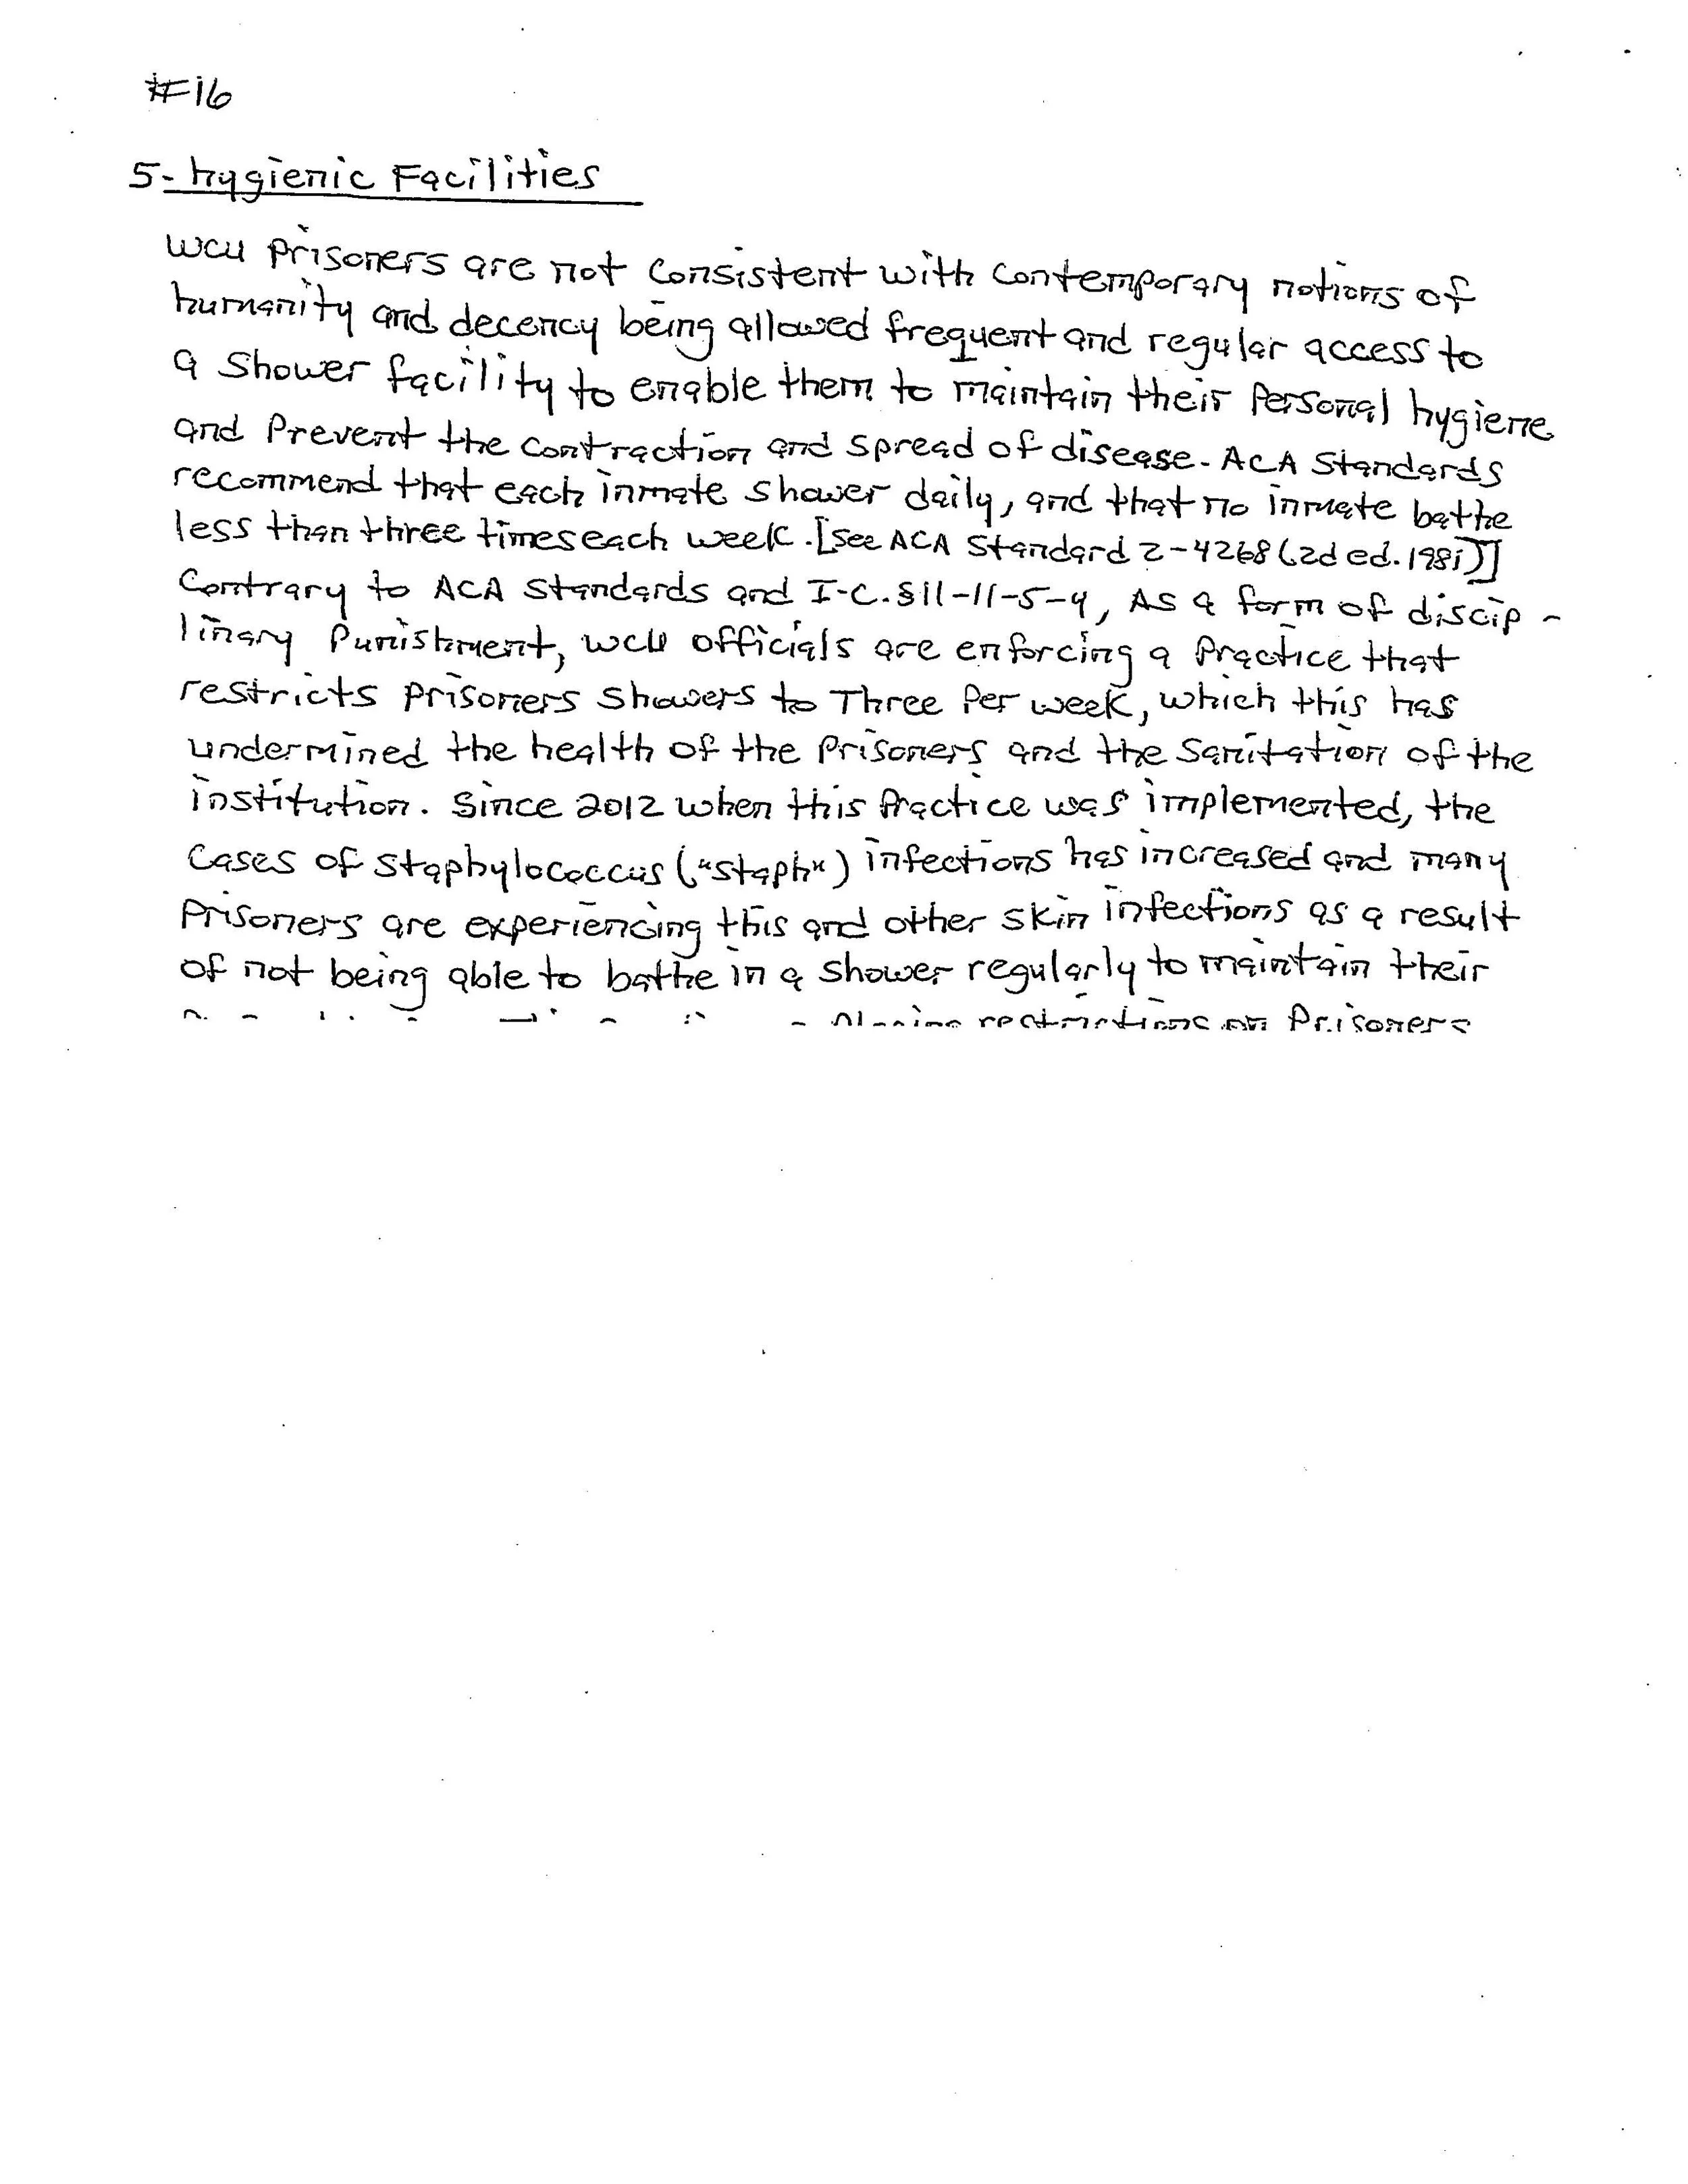 #16
5- hygienic Facilities
WCU Prisoners are not consistent with contemporary notions of
humanity and decency being allowed frequent and regular access to
a shower facility to enable them to maintain their Personal hygiene
and Prevent the contraction and spread of disease. ACA Standards
recommend that each inmate shower daily, and that no inmate bathe
less than three times each week. [See ACA Standard 2-4268 (2d ed. 1981)]
Contrary to ACA Standards and I.C. §11-11-5-4, As a form of discip-
linary Punishment, WCU officials are enforcing a Practice that
restricts Prisoners Showers to Three Per week, which this has
undermined the health of the Prisoners and the Sanitation of the
institution. Since 2012 when this Practice was implemented, the
Cases of Staphylococcus ("staph") infections has increased and many
Prisoners are experiencing this and other skin infections as a result
of not being able to bathe in a shower regularly to maintain their
restrictions on Prisoners